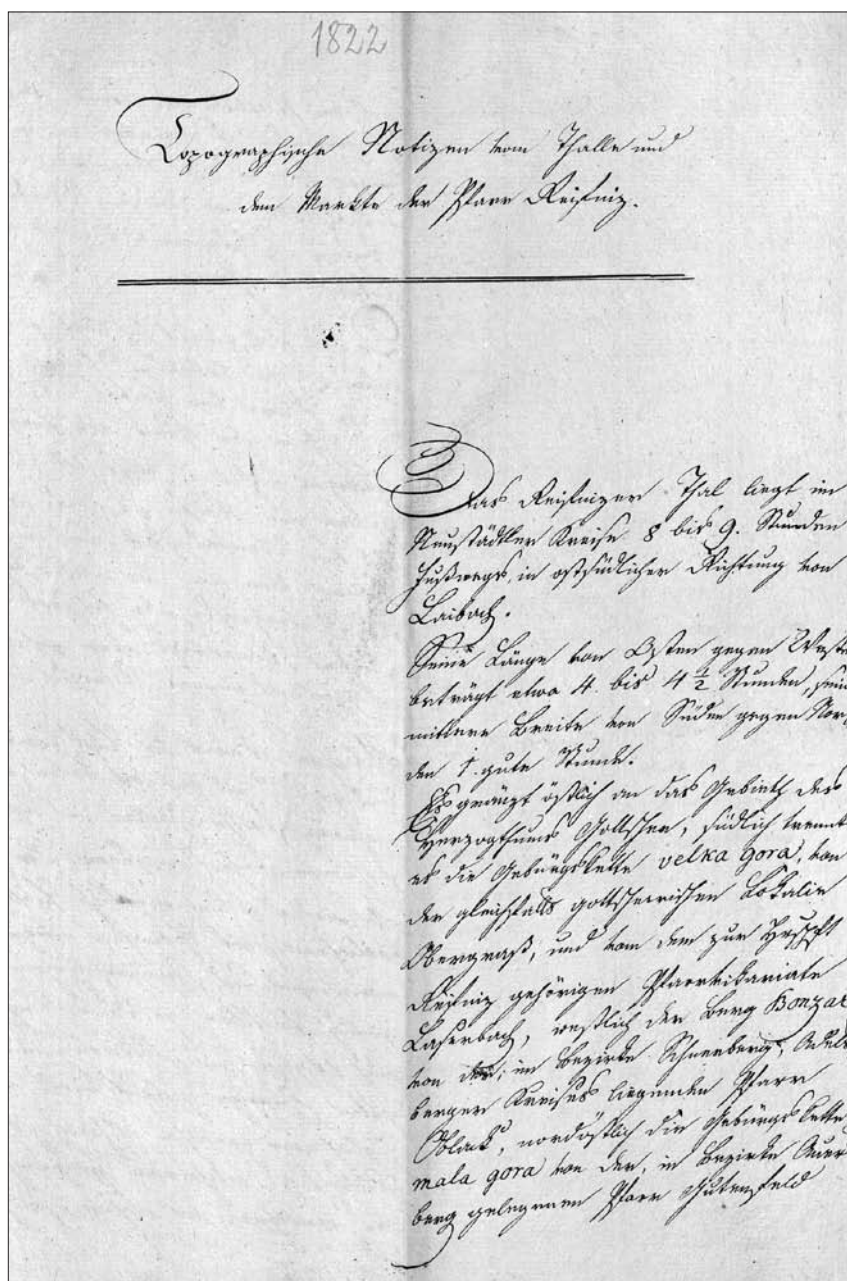 1822
Topographische Notizen vom Thalle und
dem Markte der Pfarr Reifniz.
Das Reifnizer Thal liegt im
Neustädtler Kreise 8 bis 9. Stunden
Fußwegs in ostsüdlicher Richtung von
Laibach.
Seine Länge von Osten gegen Weste
beträgt etwa 4. bis 4 ½ Stunden, sein
mittlere Breite von Süden gegen Nor
den 1. gute Stunde.
Es gränzt östlich an das Gebieth des
Herzogthums Gottschee, südlich trennt
es die Gebürgskette velka gora, von
der gleichfalls gottscheerischen Lokalie
Obergraß, und von dem zur Hrschft
Reifniz gehörigen Pfarrvikariate
Laserbach, westlich der Berg Bonzar
von der, im Bezirke Schneeberg, Adels
berger Kreises liegenden Pfarr
Oblack, nordöstlich die Gebürgskette
mala gora von der, in Bezirke Auer
berg gelegenen Pfarr Gutenfeld